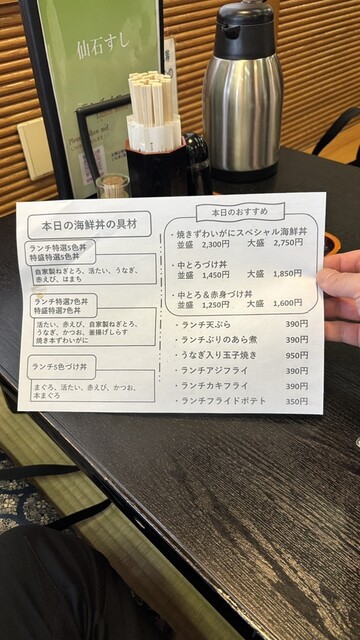 仙石すし
本日の海鮮丼の具材
ランチ特選5色丼
特盛特選5色丼
自家製ねぎとろ、活たい、うなぎ、
赤えび、はまち
ランチ特選7色丼
特盛特選7色丼
活たい、赤えび、自家製ねぎとろ、
うなぎ、かつお、釜揚げしらす
焼き本ずわいがに
ランチ5色づけ丼
まぐろ、活たい、赤えび、かつお、
本まぐろ
本日のおすすめ
・焼きずわいがにスペシャル海鮮丼
並盛 2,300円 大盛 2,750円
・中とろづけ丼
並盛 1,450円 大盛 1,850円
・中とろ＆赤身づけ丼
並盛 1,250円 大盛 1,600円
・ランチ天ぷら 390円
・ランチぶりのあら煮 390円
・うなぎ入り玉子焼き 950円
・ランチアジフライ 390円
・ランチカキフライ 390円
・ランチフライドポテト 350円